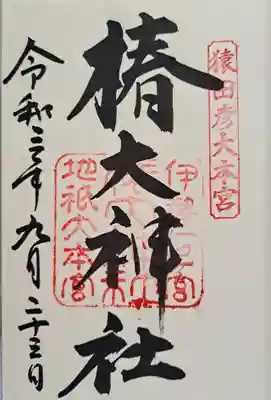 猿田彦大本宮
椿大神社
地祇大本宮
令和三年九月二十三日